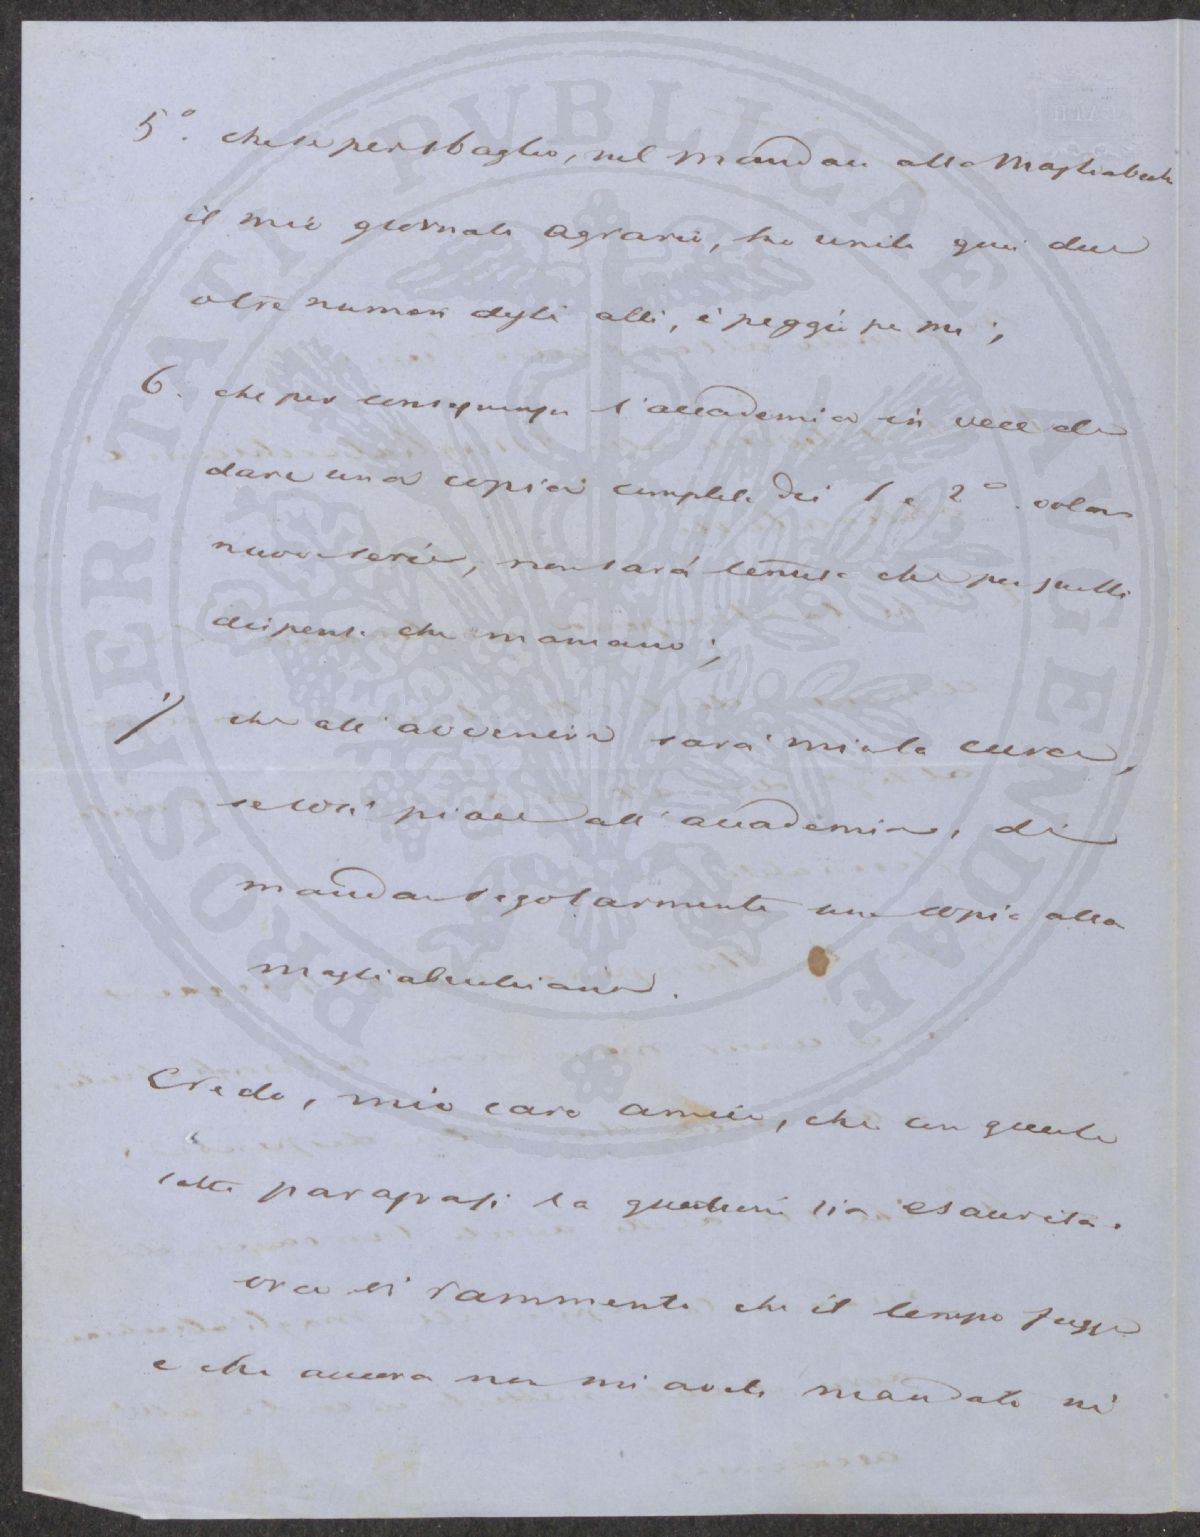 5.° che se per sbaglio, nel mandare alla Magliabech
il mio giornale agrario, ho unito quei due
oltre numeri degli atti, è peggio per me;
6. che per conseguenza l'accademia in vece di
dare una copia completa dei 1 e 2° volumi
nuova serie, non sarà tenuta che per quelli
dispense che mancano;
7 che all'avvenire sarà mia la cura,
se così piace all'accademia, di
mandare regolarmente una copia alla
magliabechiana.
Credo, mio caro amico, che con queste
sette paragrafi la questione sia esaurita.
ora vi rammento che il tempo fugge
e che ancora non mi avete mandato nè
PROSPERITATI PVBLICAE AVGENDAE